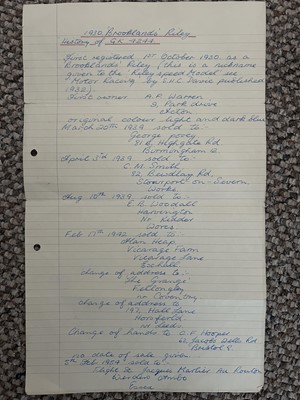 1930 Brooklands' Riley
History of GK 4244
First registered 1st October 1930. as a
Brooklands' Riley (this is a nickname
given to the 'Riley speed Model' see
"Motor Racing" by S.C.H. Davis published
1932.)
First owner A.F. Warren
Park drive
original colour light and dark blue
March 20th 1939 sold to:-
George Povey
Highgate Rd
Birmingham
April 3rd 1939 sold to:-
C.N. Smith
82, Bewdley Rd,
Stourport-on-Severn
Worcs
Aug 10th 1939 sold to:-
E.R. Woodall
Harvington
Nr Kidder
Worcs
Feb 17th 1942 sold to
Alan Heap,
Vicarage Farm
Vicarage Lane
change of address to:-
The Grange
nr Coventry
change of address to
197, Hall Lane
Horsforth
nr Leeds
Change of hands to D.F. Hooper
Jacobs Wells Rd
Bristol 8
no date of sale given
5th Feb 1954 sold to
Flight Lt Jacques
Essex